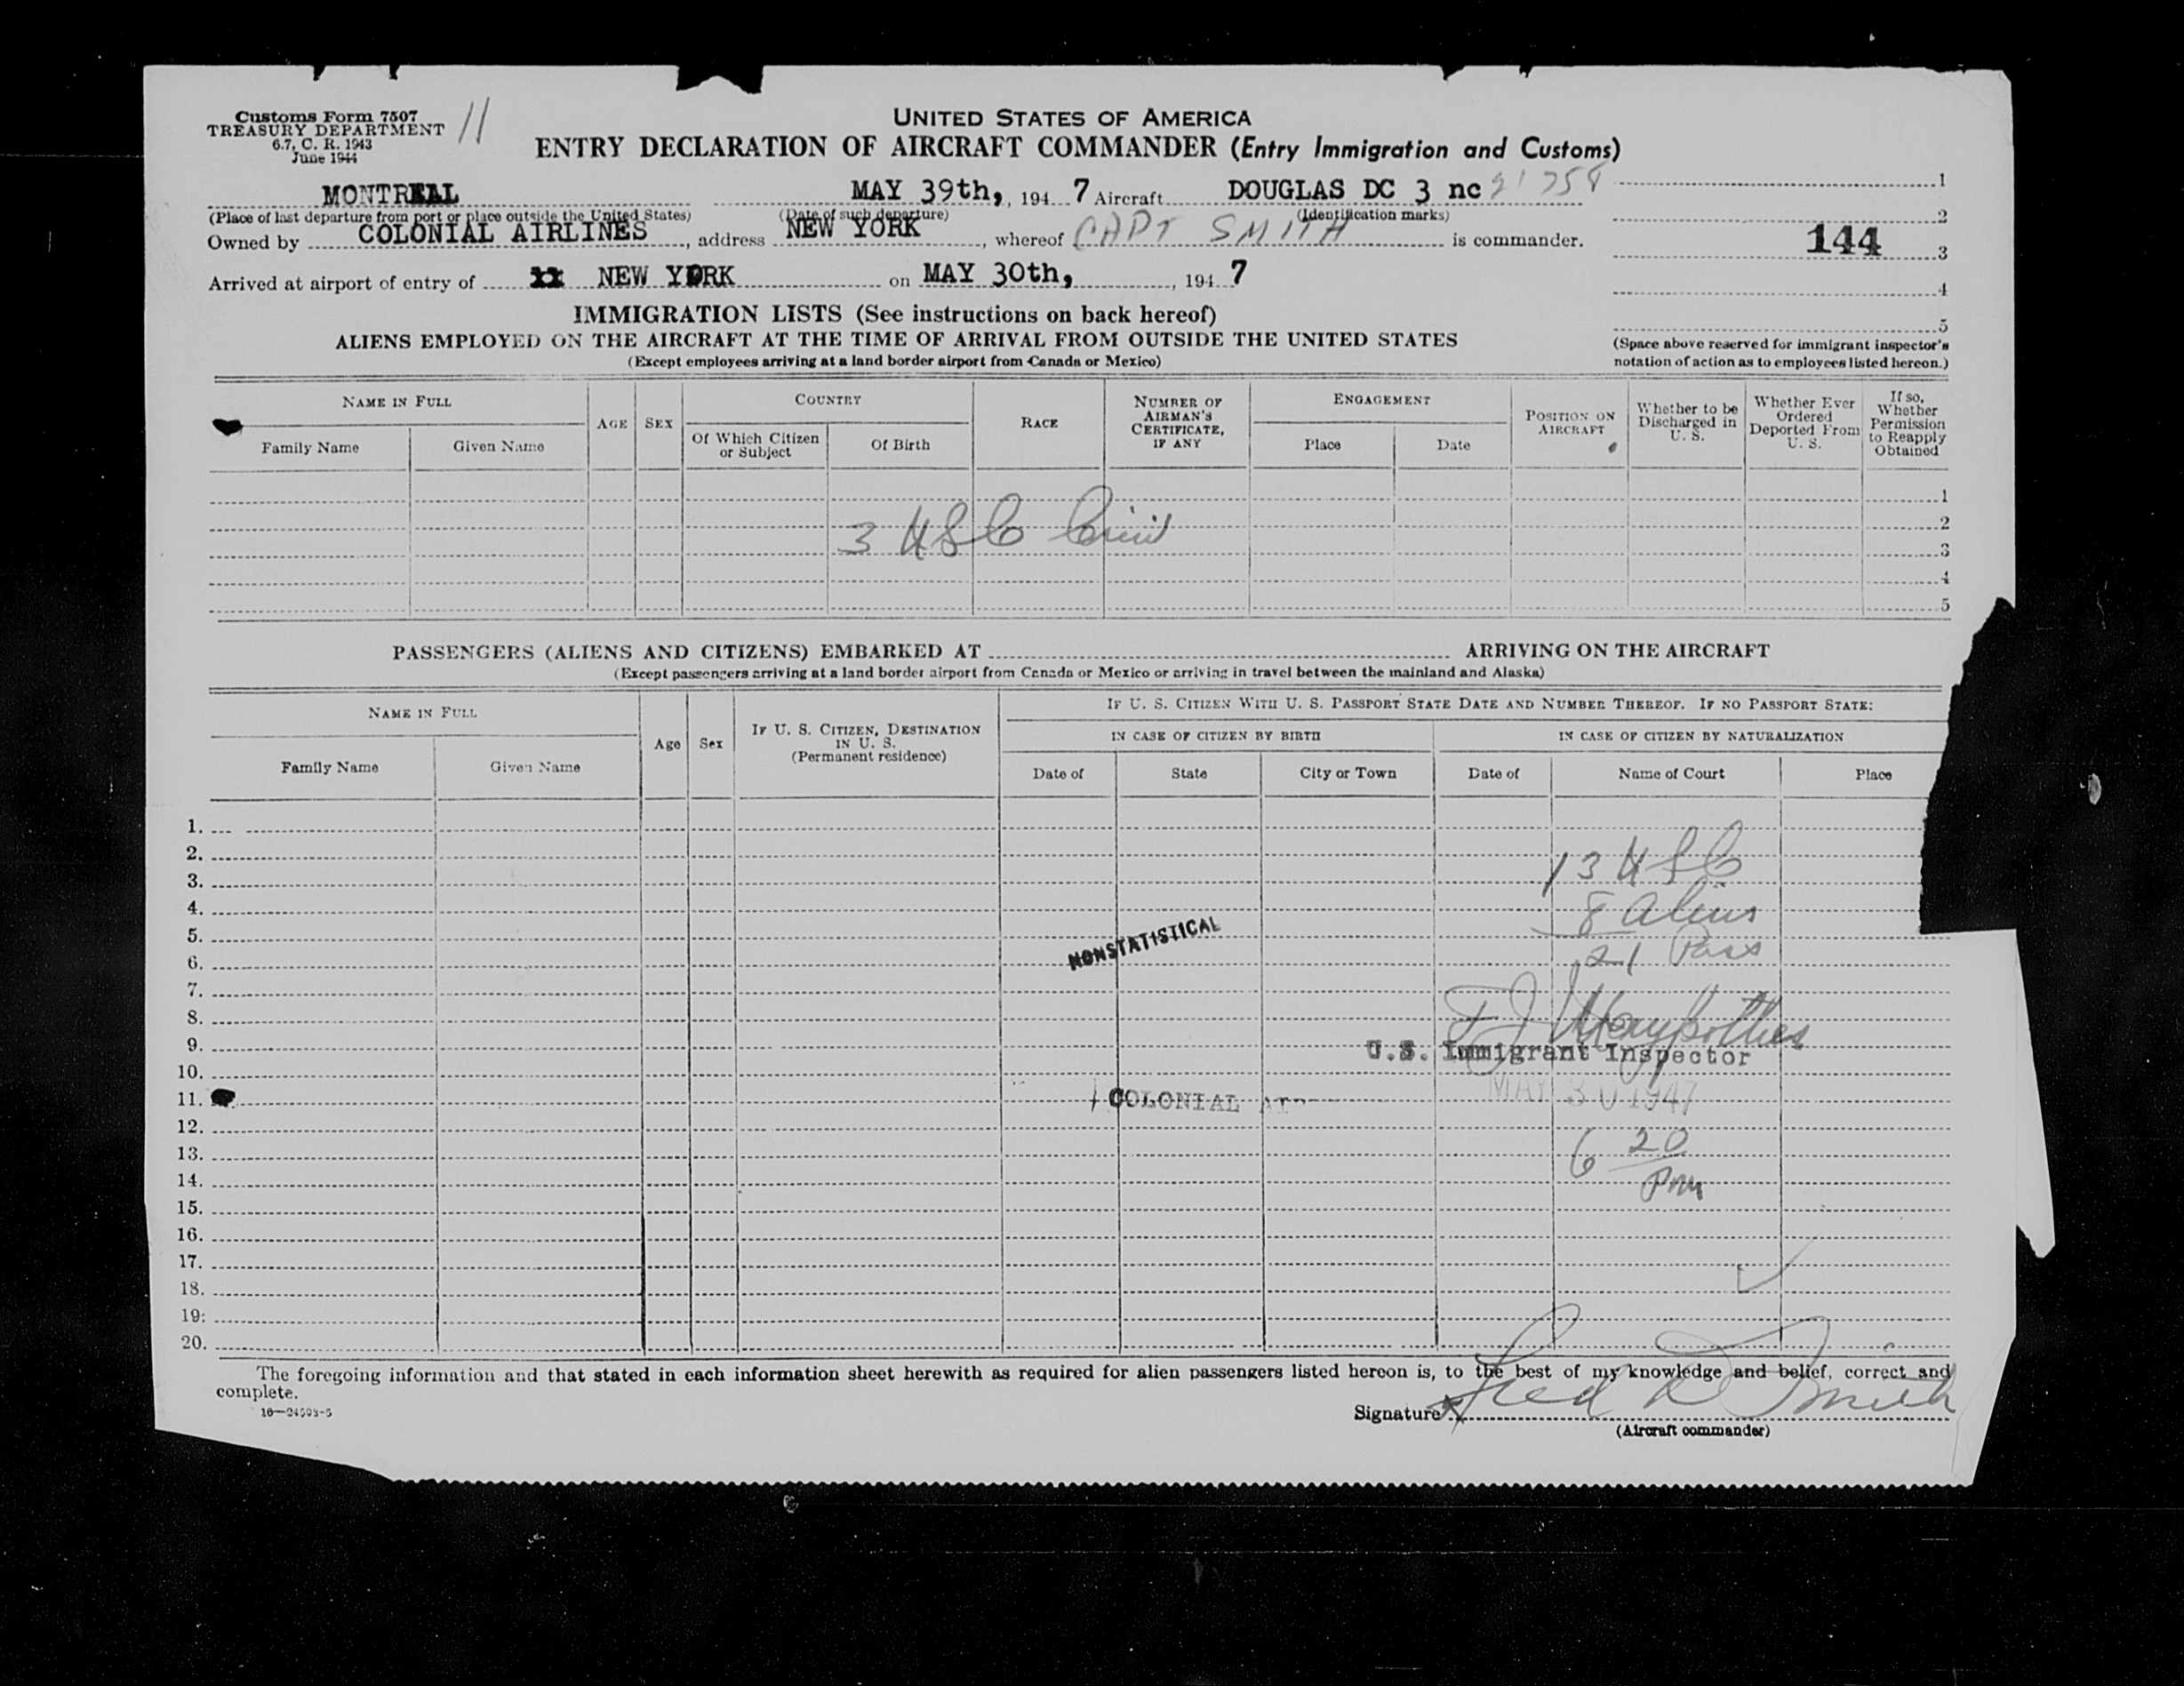 Customs Form 7507
TREASURY DEPARTMENT
6.7, C. R. 1943
June 1944
11
UNITED STATES OF AMERICA
ENTRY DECLARATION OF AIRCRAFT COMMANDER (Entry Immigration and Customs)
MONTREAL MAY 39th, , 194 7 Aircraft DOUGLAS DC 3 nc 21758
(Place of last departure from port or place outside the United States) (Date of such departure) (Identification marks)
Owned by COLONIAL AIRLINES , address NEW YORK , whereof CAPT SMITH is commander.
Arrived at airport of entry of xx NEW YORK on MAY 30th, , 194 7
1
2
144 3
4
5
(Space above reserved for immigrant inspector's
notation of action as to employees listed hereon.)
IMMIGRATION LISTS (See instructions on back hereof)
ALIENS EMPLOYED ON THE AIRCRAFT AT THE TIME OF ARRIVAL FROM OUTSIDE THE UNITED STATES
(Except employees arriving at a land border airport from Canada or Mexico)
NAME IN FULL
Family Name
Given Name
AGE
SEX
COUNTRY
Of Which Citizen
or Subject
Of Birth
RACE
NUMBER OF
AIRMAN'S
CERTIFICATE,
IF ANY
ENGAGEMENT
Place
Date
POSITION ON
AIRCRAFT
Whether to be
Discharged in
U. S.
Whether Ever
Ordered
Deported From
U. S.
If so,
Whether
Permission
to Reapply
Obtained
1
2
3
4
5
3 USC
PASSENGERS (ALIENS AND CITIZENS) EMBARKED AT ARRIVING ON THE AIRCRAFT
(Except passengers arriving at a land border airport from Canada or Mexico or arriving in travel between the mainland and Alaska)
NAME IN FULL
Family Name
Given Name
Age
Sex
IF U. S. CITIZEN, DESTINATION
IN U. S.
(Permanent residence)
IF U. S. CITIZEN WITH U. S. PASSPORT STATE DATE AND NUMBER THEREOF. IF NO PASSPORT STATE:
IN CASE OF CITIZEN BY BIRTH
IN CASE OF CITIZEN BY NATURALIZATION
Date of
State
City or Town
Date of
Name of Court
Place
1.
2.
3.
4.
5.
6.
7.
8.
9.
10.
11.
12.
13.
14.
15.
16.
17.
18.
19.
20.
13 USC
8 Aliens
21 Pass
NONSTATISTICAL
U.S. Immigrant Inspector
MAY 30 1947
COLONIAL
6 20
pm
The foregoing information and that stated in each information sheet herewith as required for alien passengers listed hereon is, to the best of my knowledge and belief, correct and
complete.
Signature x Fred D Smith
(Aircraft commander)